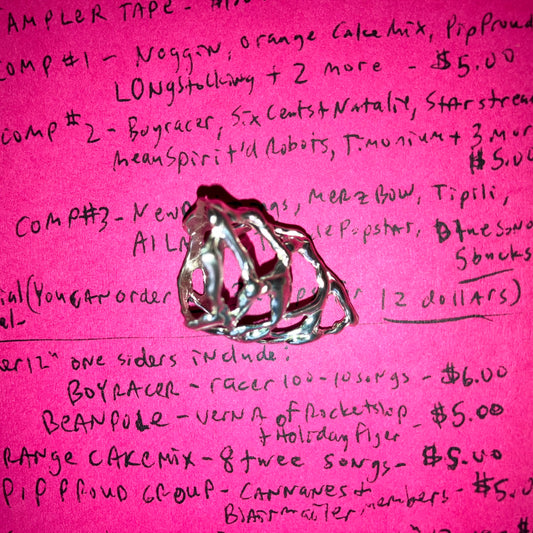 AMPLER TAPE - $1
COMP #1 - Noggin, orange Cake Mix, Pip Proud
LONgstocking + 2 more - $5.00
COMP #2 - Boyracer, Six Cents + Natalie, Starstream
MeanSpirit'd Robots, Timonium + 3 mor
$5.00
COMP#3 - New gs, MERZBOW, Tipili,
Popstar,
5 bucks
(You CAN order 12 dollars)
er 12" one siders include:
BOYRACER - racer 100 - 10 songs - $6.00
BEANPOLE - VERNA of Rocketship $5.00
+ Holiday Flyer
RANGE CAKE MIX - 8 twee songs - $5.00
PIP PROUD GROUP - CANNANES + members - $5.